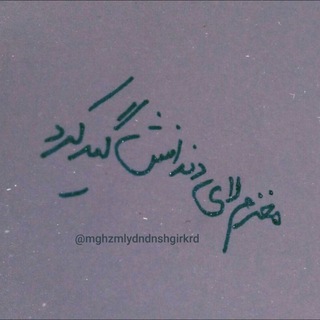 مغزم لای دندانش گیر کرد
@mghzmlydndnshgirkrd